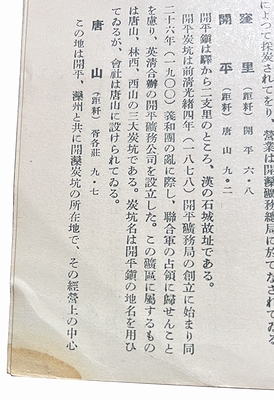 よつて採炭されてをり、營業は開灤礦務總局に於てなされてゐる
窪里 (距軒) 開平 六・八
開平 (距軒) 唐山 九・二
開平鎭は驛から二支里のところ、漢の石城故址である。
開平炭坑は前淸光緖四年(一八七八)開平礦務局の創立に始まり同
二十六年(一九〇〇)義和團の亂に際し、聯合軍の占領に歸せんこと
を慮り、英淸合辦の開平礦務公司を設立した。この礦區に屬するもの
は唐山、林西、西山の三大炭坑である。炭坑名は開平鎭の地名を用ひ
てゐるが、會社は唐山に設けられてゐる。
唐山 (距軒) 胥各莊 九・七
この地は開平、灤州と共に開灤炭坑の所在地で、その經營上の中心